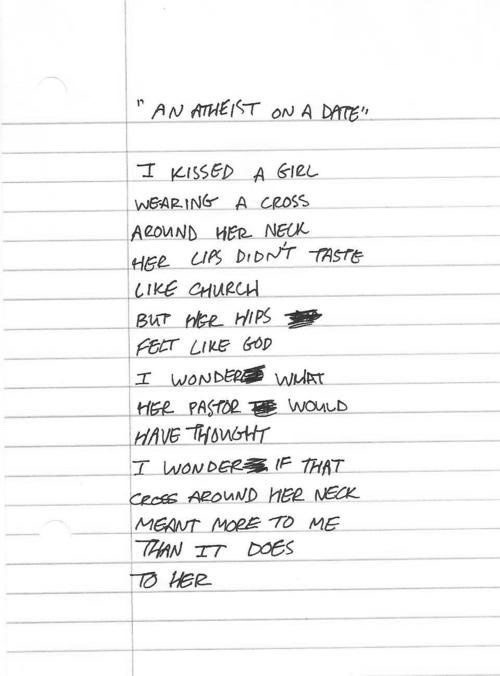 "AN ATHEIST ON A DATE"
I KISSED A GIRL
WEARING A CROSS
AROUND HER NECK
HER LIPS DIDN'T TASTE
LIKE CHURCH
BUT HER HIPS
FELT LIKE GOD
I WONDER WHAT
HER PASTOR WOULD
HAVE THOUGHT
I WONDER IF THAT
CROSS AROUND HER NECK
MEANT MORE TO ME
THAN IT DOES
TO HER